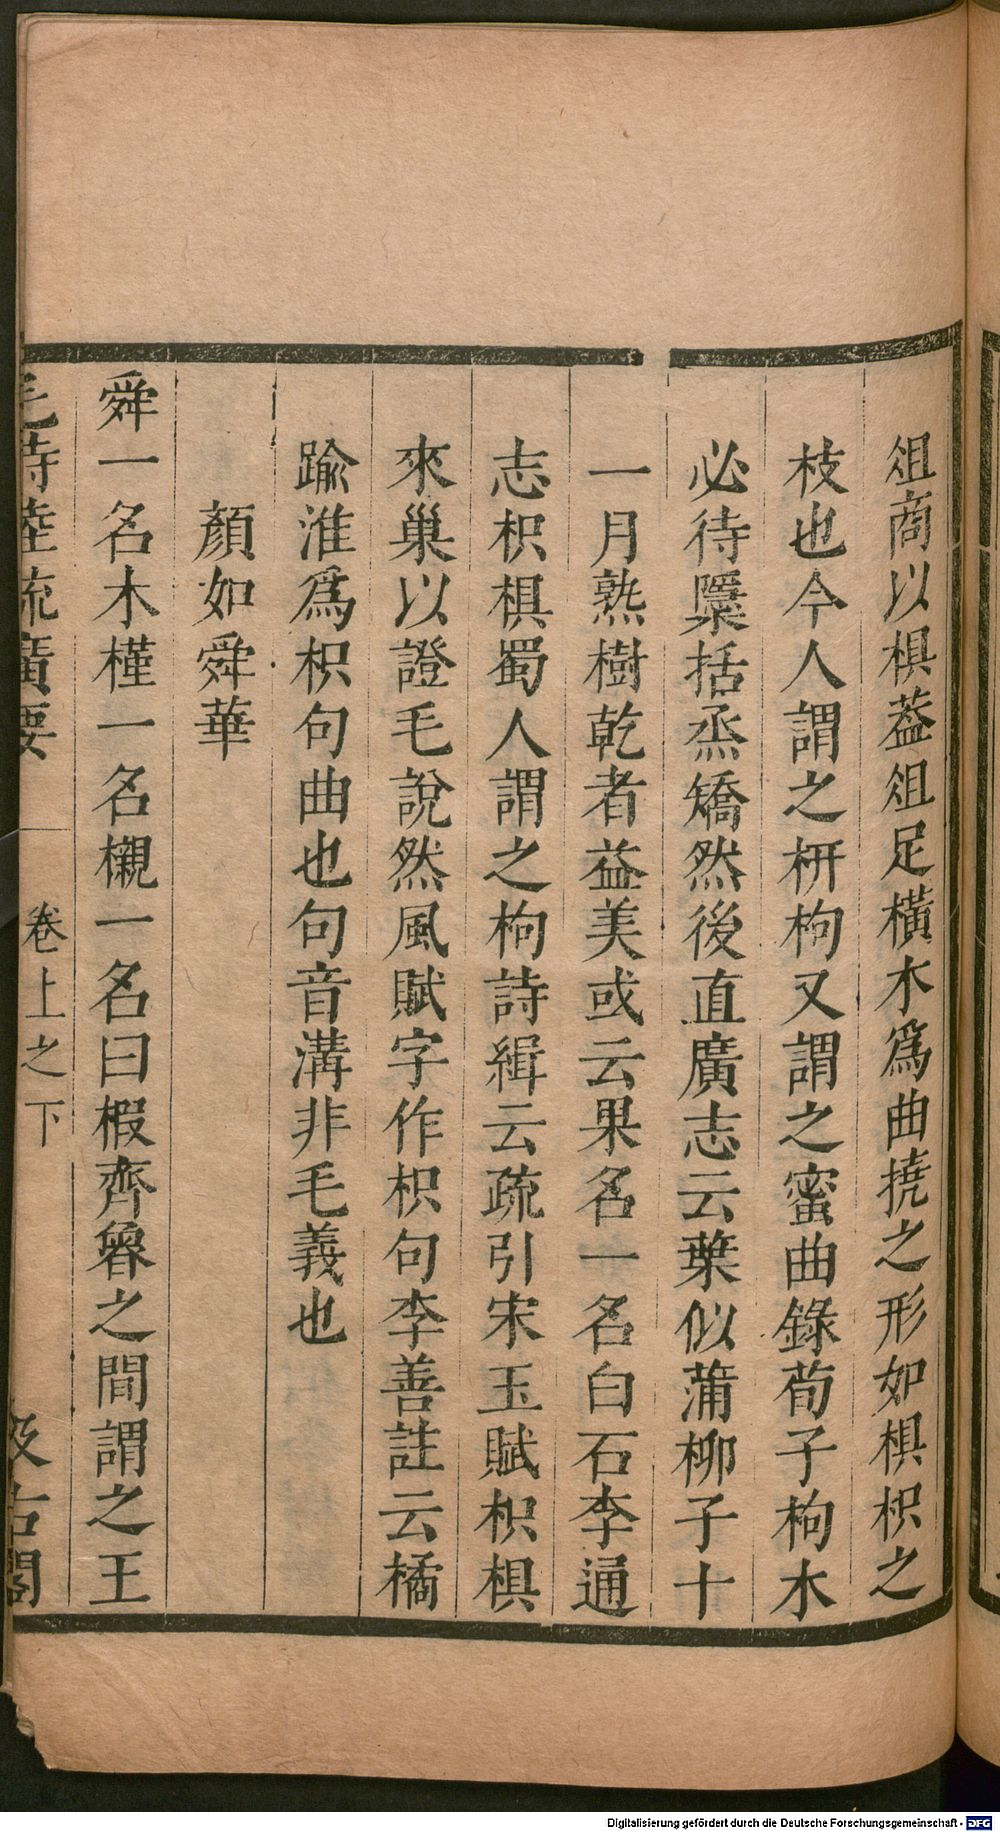 俎商以椇葢俎足橫木爲曲撓之形如椇枳之
枝也今人謂之枅枸又謂之蜜曲錄荀子枸木
必待檃括烝矯然後直廣志云葉似蒲柳子十
一月熟樹乾者益美或云果名一名白石李通
志枳椇蜀人謂之枸詩緝云疏引宋玉賦枳椇
來巢以證毛說然風賦字作枳句李善註云橘
踰淮爲枳句曲也句音溝非毛義也
顏如舜華
舜一名木槿一名櫬一名曰椴齊魯之間謂之王
毛詩陸疏廣要 卷上之下 汲古閣
Digitalisierung gefördert durch die Deutsche Forschungsgemeinschaft - DFG